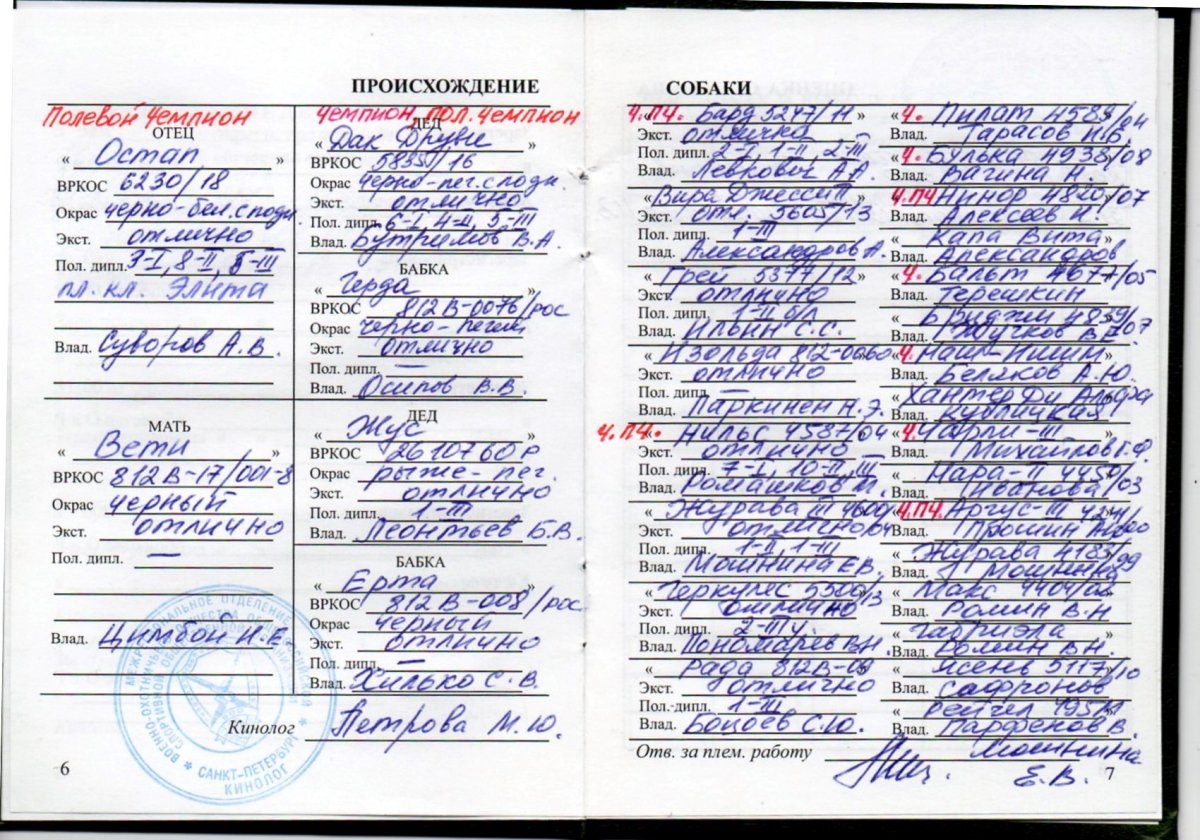 ПРОИСХОЖДЕНИЕ
Полевой Чемпион
ОТЕЦ
« Остап »
ВРКОС 6230/18
Окрас черно-бел. с подп.
Экст. отлично
Пол. дипл. 3-I, 8-II, 5-III
пл. кл. Элита
Влад. Суворов А.В.
МАТЬ
« Вети »
ВРКОС 812В-17/001-8
Окрас черный
Экст. отлично
Пол. дипл. —
Влад. Цимбой Н.Е.
Чемпион, Пол. Чемпион
ДЕД
«Дак Друыс »
ВРКОС /16
Окрас черно-пег. с подп.
Экст. отлично
Пол. дипл. 6-I, 4-II, 5-III
Влад. Бутримов В.А.
БАБКА
« Герда »
ВРКОС 812В-0076/рос
Окрас черно-пегий
Экст. отлично
Пол. дипл. —
Влад. Осипов В.В.
ДЕД
« Жус »
ВРКОС 2610760Р
Окрас рыже-пег.
Экст. отлично
Пол. дипл. 1-III
Влад. Леонтьев Б.В.
БАБКА
« Ерта »
ВРКОС 812В-008/рос
Окрас черный
Экст. отлично
Пол. дипл. —
Влад. Хилько С.В.
Кинолог Петрова М.Ю.
МЕЖРЕГИОНАЛЬНОЕ ОТДЕЛЕНИЕ
ВОЕННО-ОХОТНИЧЬЕ
САНКТ-ПЕТЕРБУРГ
КИНОЛОГ
6
СОБАКИ
Ч.ПЧ. Бард 5247/11 »
Экст. отлично
Пол. дипл. 2-I, 1-II, 2-III
Влад. Левкович А.А.
«Вира Джесси II »
Экст. отл. 5605/13
Пол. дипл. 1-III
Влад. Александров А.
« Грей 5377/12 »
Экст. отлично
Пол. дипл. 1-II б/л
Влад. Ильин С.С.
« Изольда 812-0060
Экст. отлично
Пол. дипл. —
Влад. Паркинен Н.Э.
Ч.ПЧ. « Нильс 4587/04
Экст. отлично
Пол. дипл. 7-I, 10-II, III
Влад. Ромашков М.
« Журава III 4600/04
Экст. отлично
Пол. дипл. 1-I, 1-III
Влад. Мошнина Е.В.
« Геркулес 5500/13
Экст. отлично
Пол. дипл. 2-III у.
Влад. Пономарев В.Н.
« Рада 812В-09
Экст. отлично
Пол.-дипл. 1-III
Влад. Боцоев С.Ю.
«Ч. Пилат 4589/04
Влад. Тарасов Н.В.
«Ч. Булька 4938/08
Влад. Вагина Н.
Ч.ПЧ Нинор 4820/07
Влад. Алексеев И.
« Капа Вита»
Влад. Александров
«Ч. Бальт 4677/05
Влад. Терешкин
« Бриджи 4859/07
Влад. Жучков В.Е.
«Ч. Наш-Ишим »
Влад. Беляков А.Ю.
«Хантер Ди Альфа
Влад.
«Ч. Чарли-III
Влад. Михайлов Г.Ф.
« Нара-I 4450/03
Влад. Иванова
«Ч.ПЧ. Аргус-III
Влад. Прошин
« Журава 4183/99
Влад. Мошнина
« Макс 4404/02
Влад. Ромин В.Н
« Габриэла »
Влад. Ромин В.Н.
« Ясень 5117/10
Влад. Сафронов
« Рейчел 1951
Влад. Парфенов В.
Отв. за плем. работу Мошнина
Е.В.
7